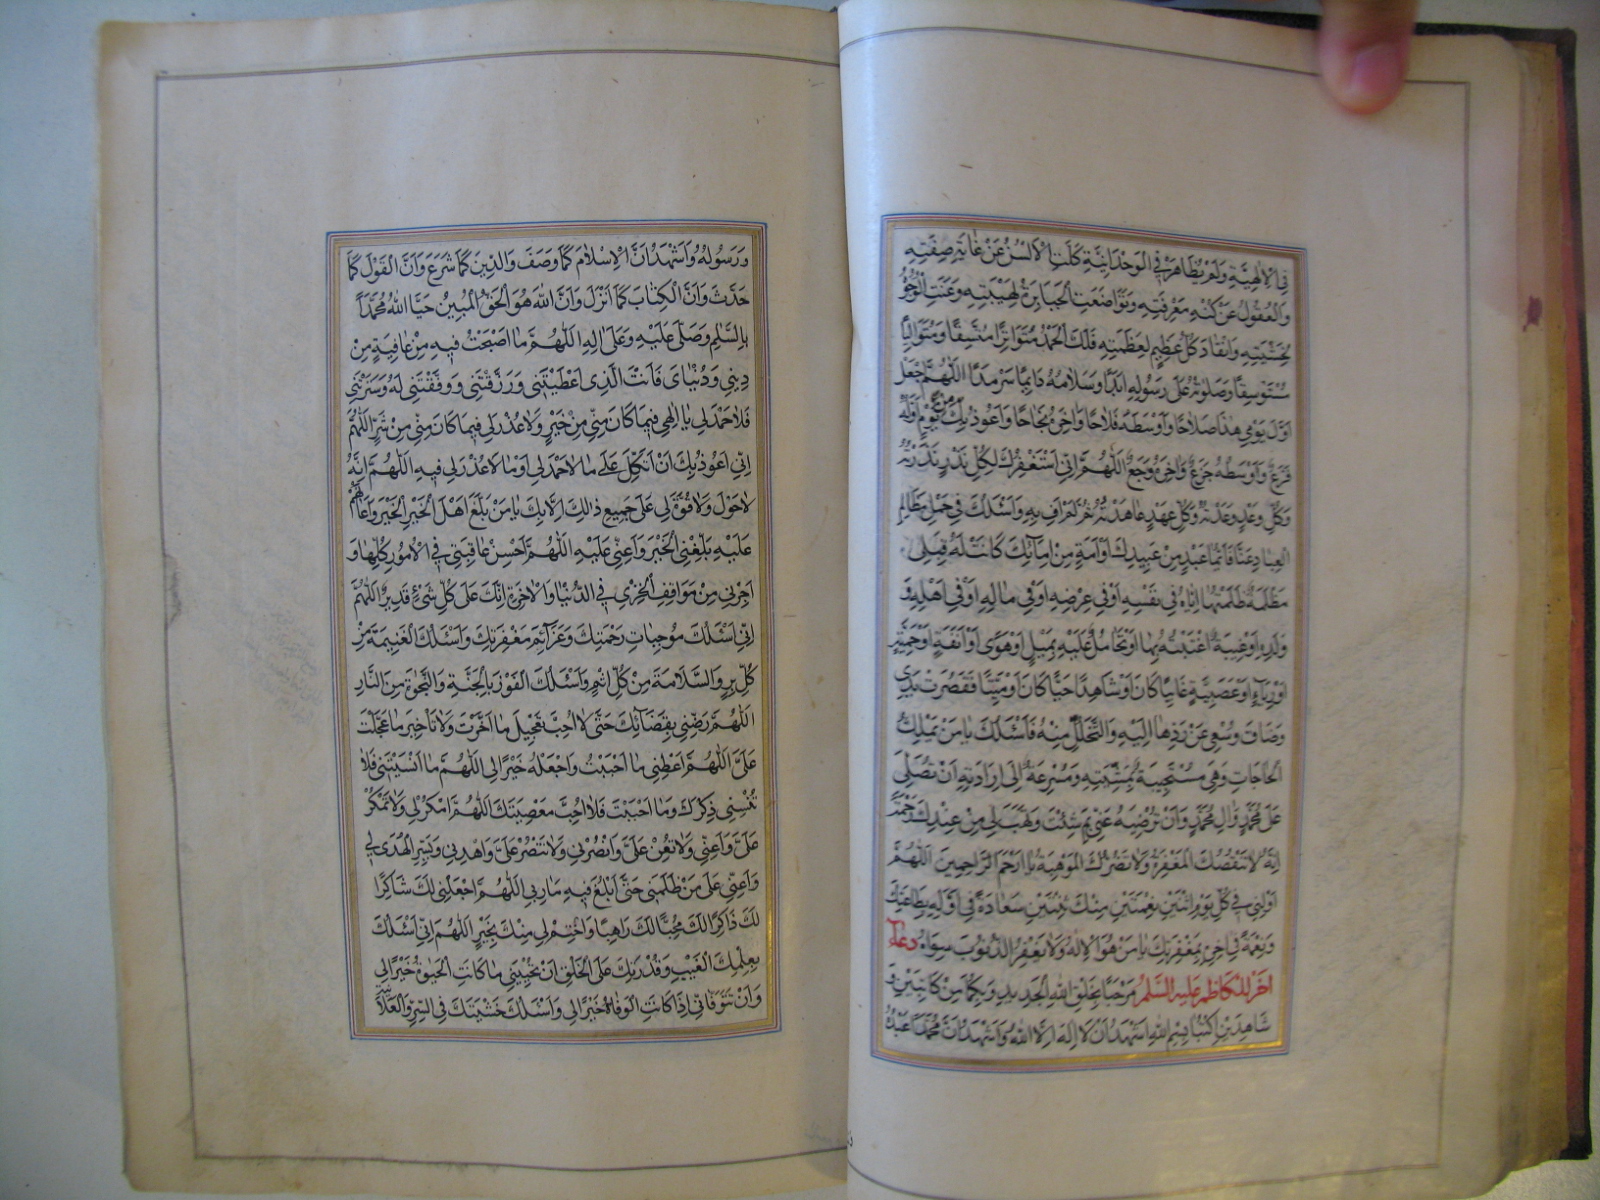 فِي الْاِلٰهِيَّةِ وَلَمْ يُظَاهَرْ فِي الْوَحْدَانِيَّةِ كَلَّتِ الْاَلْسُنُ عَنْ غَايَةِ صِفَتِهِ
وَالْعُقُولُ عَنْ كُنْهِ مَعْرِفَتِهِ وَتَوَاضَعَتِ الْجَبَابِرَةُ لِهَيْبَتِهِ وَعَنَتِ الْوُجُوهُ
لِخَشْيَتِهِ وَانْقَادَ كُلُّ عَظِيمٍ لِعَظَمَتِهِ فَلَكَ الْحَمْدُ مُتَوَاتِرًا مُتَّسِقًا وَمُتَوَالِيًا
مُسْتَوْسِقًا وَصَلَوٰتُهُ عَلَى رَسُولِهِ اَبَدًا وَسَلَامُهُ دَائِمًا سَرْمَدًا اَللّٰهُمَّ اجْعَلْ
اَوَّلَ يَوْمِي هٰذَا صَلَاحًا وَاَوْسَطَهُ فَلَاحًا وَاٰخِرَهُ نَجَاحًا وَاَعُوذُ بِكَ مِنْ يَوْمٍ اَوَّلُهُ
فَزَعٌ وَاَوْسَطُهُ جَزَعٌ وَاٰخِرُهُ وَجَعٌ اَللّٰهُمَّ اِنِّي اَسْتَغْفِرُكَ لِكُلِّ نَذْرٍ نَذَرْتُهُ
وَكُلِّ وَعْدٍ وَعَدْتُهُ وَكُلِّ عَهْدٍ عَاهَدْتُهُ ثُمَّ لَمْ اَفِ بِهِ وَاَسْئَلُكَ فِي حَمْلِ مَظَالِمِ
الْعِبَادِ عَنَّا فَاَيُّمَا عَبْدٍ مِنْ عَبِيدِكَ اَوْ اَمَةٍ مِنْ اِمَائِكَ كَانَتْ لَهُ قِبَلِي
مَظْلَمَةٌ ظَلَمْتُهَا اِيَّاهُ فِي نَفْسِهِ اَوْ فِي عِرْضِهِ اَوْ فِي مَالِهِ اَوْ فِي اَهْلِهِ وَ
وَلَدِهِ اَوْ غِيبَةٌ اغْتَبْتُهُ بِهَا اَوْ تَحَامُلٌ عَلَيْهِ بِمَيْلٍ اَوْ هَوًى اَوْ اَنَفَةٍ اَوْ حَمِيَّةٍ
اَوْ رِيَاءٍ اَوْ عَصَبِيَّةٍ غَائِبًا كَانَ اَوْ شَاهِدًا حَيًّا كَانَ اَوْ مَيِّتًا فَقَصُرَتْ يَدِي
وَضَاقَ وُسْعِي عَنْ رَدِّهَا اِلَيْهِ وَالتَّحَلُّلِ مِنْهُ فَاَسْئَلُكَ يَا مَنْ يَمْلِكُ
الْحَاجَاتِ وَهِيَ مُسْتَجِيبَةٌ بِمَشِيَّتِهِ وَمُسْرِعَةٌ اِلَى اِرَادَتِهِ اَنْ تُصَلِّيَ
عَلَى مُحَمَّدٍ وَاٰلِ مُحَمَّدٍ وَاَنْ تُرْضِيَهُ عَنِّي بِمَ شِئْتَ وَتَهَبَ لِي مِنْ عِنْدِكَ رَحْمَةً
اِنَّهُ لَا تَنْقُصُكَ الْمَغْفِرَةُ وَلَا تَضُرُّكَ الْمَوْهِبَةُ يَا اَرْحَمَ الرَّاحِمِينَ اَللّٰهُمَّ
اَوْلِنِي فِي كُلِّ يَوْمِ اثْنَيْنِ نِعْمَتَيْنِ مِنْكَ ثِنْتَيْنِ سَعَادَةً فِي اَوَّلِهِ بِطَاعَتِكَ
وَنِعْمَةً فِي اٰخِرِهِ بِمَغْفِرَتِكَ يَا مَنْ هُوَ الْاِلٰهُ وَلَا يَغْفِرُ الذُّنُوبَ سِوَاهُ دعاء
اٰخَرُ لِلْكَاظِمِ عَلَيْهِ السَّلٰمُ مَرْحَبًا بِخَلْقِ اللّٰهِ الْجَدِيدِ وَبِكُمَا مِنْ كَاتِبَيْنِ وَ
شَاهِدَيْنِ اكْتُبَا بِسْمِ اللّٰهِ اَشْهَدُ اَنْ لَا اِلٰهَ اِلَّا اللّٰهُ وَاَشْهَدُ اَنَّ مُحَمَّدًا عَبْدُهُ
وَرَسُولُهُ وَاَشْهَدُ اَنَّ الْاِسْلَامَ كَمَا وَصَفَ وَالدِّينَ كَمَا شَرَعَ وَاَنَّ الْقَوْلَ كَمَا
حَدَّثَ وَاَنَّ الْكِتَابَ كَمَا اَنْزَلَ وَاَنَّ اللّٰهَ هُوَ الْحَقُّ الْمُبِينُ حَيَّا اللّٰهُ مُحَمَّدًا
بِالسَّلٰمِ وَصَلَّى عَلَيْهِ وَعَلَى اٰلِهِ اَللّٰهُمَّ مَا اَصْبَحْتُ فِيهِ مِنْ عَافِيَةٍ مِنْ
دِينِي وَدُنْيَايَ فَاَنْتَ الَّذِي اَعْطَيْتَنِي وَرَزَقْتَنِي وَوَفَّقْتَنِي لَهُ وَسَتَرْتَنِي
فَلَا حَمْدَ لِي يَا اِلٰهِي فِيمَا كَانَ مِنِّي مِنْ خَيْرٍ وَلَا عُذْرَ لِي فِيمَا كَانَ مِنِّي مِنْ شَرٍّ اَللّٰهُمَّ
اِنِّي اَعُوذُ بِكَ اَنْ اَتَّكِلَ عَلَى مَا لَا حَمْدَ لِي اَوْ مَا لَا عُذْرَ لِي فِيهِ اَللّٰهُمَّ اِنَّهُ
لَا حَوْلَ وَلَا قُوَّةَ لِي عَلَى جَمِيعِ ذٰلِكَ اِلَّا بِكَ يَا مَنْ بَلَّغَ اَهْلَ الْخَيْرِ الْخَيْرَ وَاَعَانَهُمْ
عَلَيْهِ بَلِّغْنِي الْخَيْرَ وَاَعِنِّي عَلَيْهِ اَللّٰهُمَّ اَحْسِنْ عَاقِبَتِي فِي الْاُمُورِ كُلِّهَا وَ
اَجِرْنِي مِنْ مَوَاقِفِ الْخِزْيِ فِي الدُّنْيَا وَالْاٰخِرَةِ اِنَّكَ عَلَى كُلِّ شَيْءٍ قَدِيرٌ اَللّٰهُمَّ
اِنِّي اَسْئَلُكَ مُوجِبَاتِ رَحْمَتِكَ وَعَزَائِمَ مَغْفِرَتِكَ وَاَسْئَلُكَ الْغَنِيمَةَ مِنْ
كُلِّ بِرٍّ وَالسَّلَامَةَ مِنْ كُلِّ اِثْمٍ وَاَسْئَلُكَ الْفَوْزَ بِالْجَنَّةِ وَالنَّجٰوةَ مِنَ النَّارِ
اَللّٰهُمَّ رَضِّنِي بِقَضَائِكَ حَتَّى لَا اُحِبَّ تَعْجِيلَ مَا اَخَّرْتَ وَلَا تَأْخِيرَ مَا عَجَّلْتَ
عَلَيَّ اَللّٰهُمَّ اَعْطِنِي مَا اَحْبَبْتُ وَاجْعَلْهُ خَيْرًا لِي اَللّٰهُمَّ مَا اَنْسَيْتَنِي فَلَا
تُنْسِنِي ذِكْرَكَ وَمَا اَحْبَبْتُ فَلَا اُحِبُّ مَعْصِيَتَكَ اَللّٰهُمَّ امْكُرْ لِي وَلَا تَمْكُرْ
عَلَيَّ وَاَعِنِّي وَلَا تُعِنْ عَلَيَّ وَانْصُرْنِي وَلَا تَنْصُرْ عَلَيَّ وَاهْدِنِي وَيَسِّرِ الْهُدَى لِي
وَاَعِنِّي عَلَى مَنْ ظَلَمَنِي حَتَّى اَبْلُغَ فِيهِ مَاٰرِبِي اَللّٰهُمَّ اجْعَلْنِي لَكَ شَاكِرًا
لَكَ ذَاكِرًا لَكَ مُحِبًّا لَكَ رَاهِبًا وَاخْتِمْ لِي مِنْكَ بِخَيْرٍ اَللّٰهُمَّ اِنِّي اَسْئَلُكَ
بِعِلْمِكَ الْغَيْبَ وَقُدْرَتِكَ عَلَى الْخَلْقِ اَنْ تُحْيِيَنِي مَا كَانَتِ الْحَيٰوةُ خَيْرًا لِي
وَاَنْ تَتَوَفَّانِي اِذَا كَانَتِ الْوَفَاةُ خَيْرًا لِي وَاَسْئَلُكَ خَشْيَتَكَ فِي السِّرِّ وَالْعَلَانِيَةِ